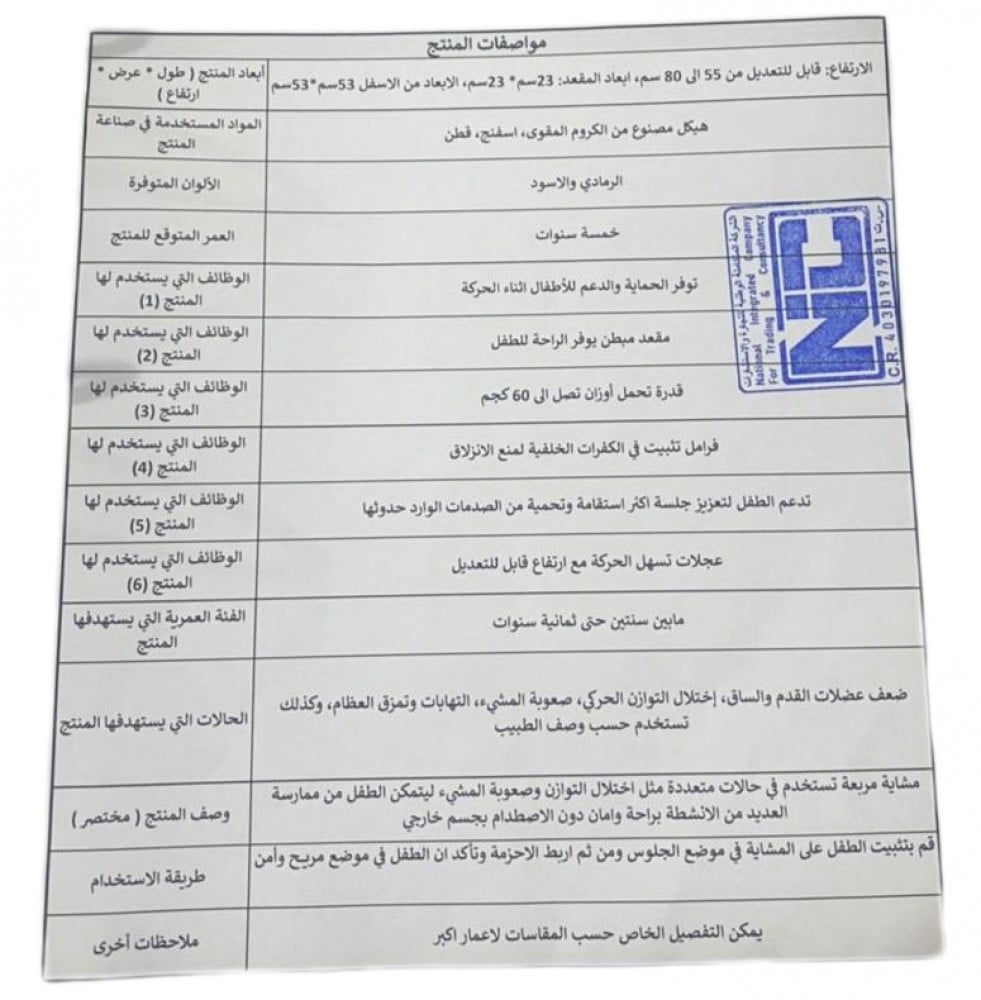 مواصفات المنتج
أبعاد المنتج ( طول * عرض *
ارتفاع )
الارتفاع: قابل للتعديل من 55 الى 80 سم، ابعاد المقعد: 23سم* 23سم، الابعاد من الاسفل 53سم*53سم
المواد المستخدمة في صناعة
المنتج
هيكل مصنوع من الكروم المقوى، اسفنج، قطن
الألوان المتوفرة
الرمادي والاسود
العمر المتوقع للمنتج
خمسة سنوات
الوظائف التي يستخدم لها
المنتج (1)
توفر الحماية والدعم للأطفال اثناء الحركة
الوظائف التي يستخدم لها
المنتج (2)
مقعد مبطن يوفر الراحة للطفل
الوظائف التي يستخدم لها
المنتج (3)
قدرة تحمل أوزان تصل الى 60 كجم
الوظائف التي يستخدم لها
المنتج (4)
فرامل تثبيت في الكفرات الخلفية لمنع الانزلاق
الوظائف التي يستخدم لها
المنتج (5)
تدعم الطفل لتعزيز جلسة اكثر استقامة وتحمية من الصدمات الوارد حدوثها
الوظائف التي يستخدم لها
المنتج (6)
عجلات تسهل الحركة مع ارتفاع قابل للتعديل
الفئة العمرية التي يستهدفها
المنتج
مابين سنتين حتى ثمانية سنوات
الحالات التي يستهدفها المنتج
ضعف عضلات القدم والساق، إختلال التوازن الحركي، صعوبة المشيء، التهابات وتمزق العظام، وكذلك
تستخدم حسب وصف الطبيب
وصف المنتج ( مختصر )
مشاية مربعة تستخدم في حالات متعددة مثل اختلال التوازن وصعوبة المشيء ليتمكن الطفل من ممارسة
العديد من الانشطة براحة وامان دون الاصطدام بجسم خارجي
طريقة الاستخدام
قم بتثبيت الطفل على المشاية في موضع الجلوس ومن ثم اربط الاحزمة وتأكد ان الطفل في موضع مريح وأمن
ملاحظات أخرى
يمكن التفصيل الخاص حسب المقاسات لاعمار اكبر
الشركة المتكاملة الوطنية للتجارة والاستشارات
National Integrated Company
For Trading & Consultancy
NIC
C.R. 4030197981 س.ت